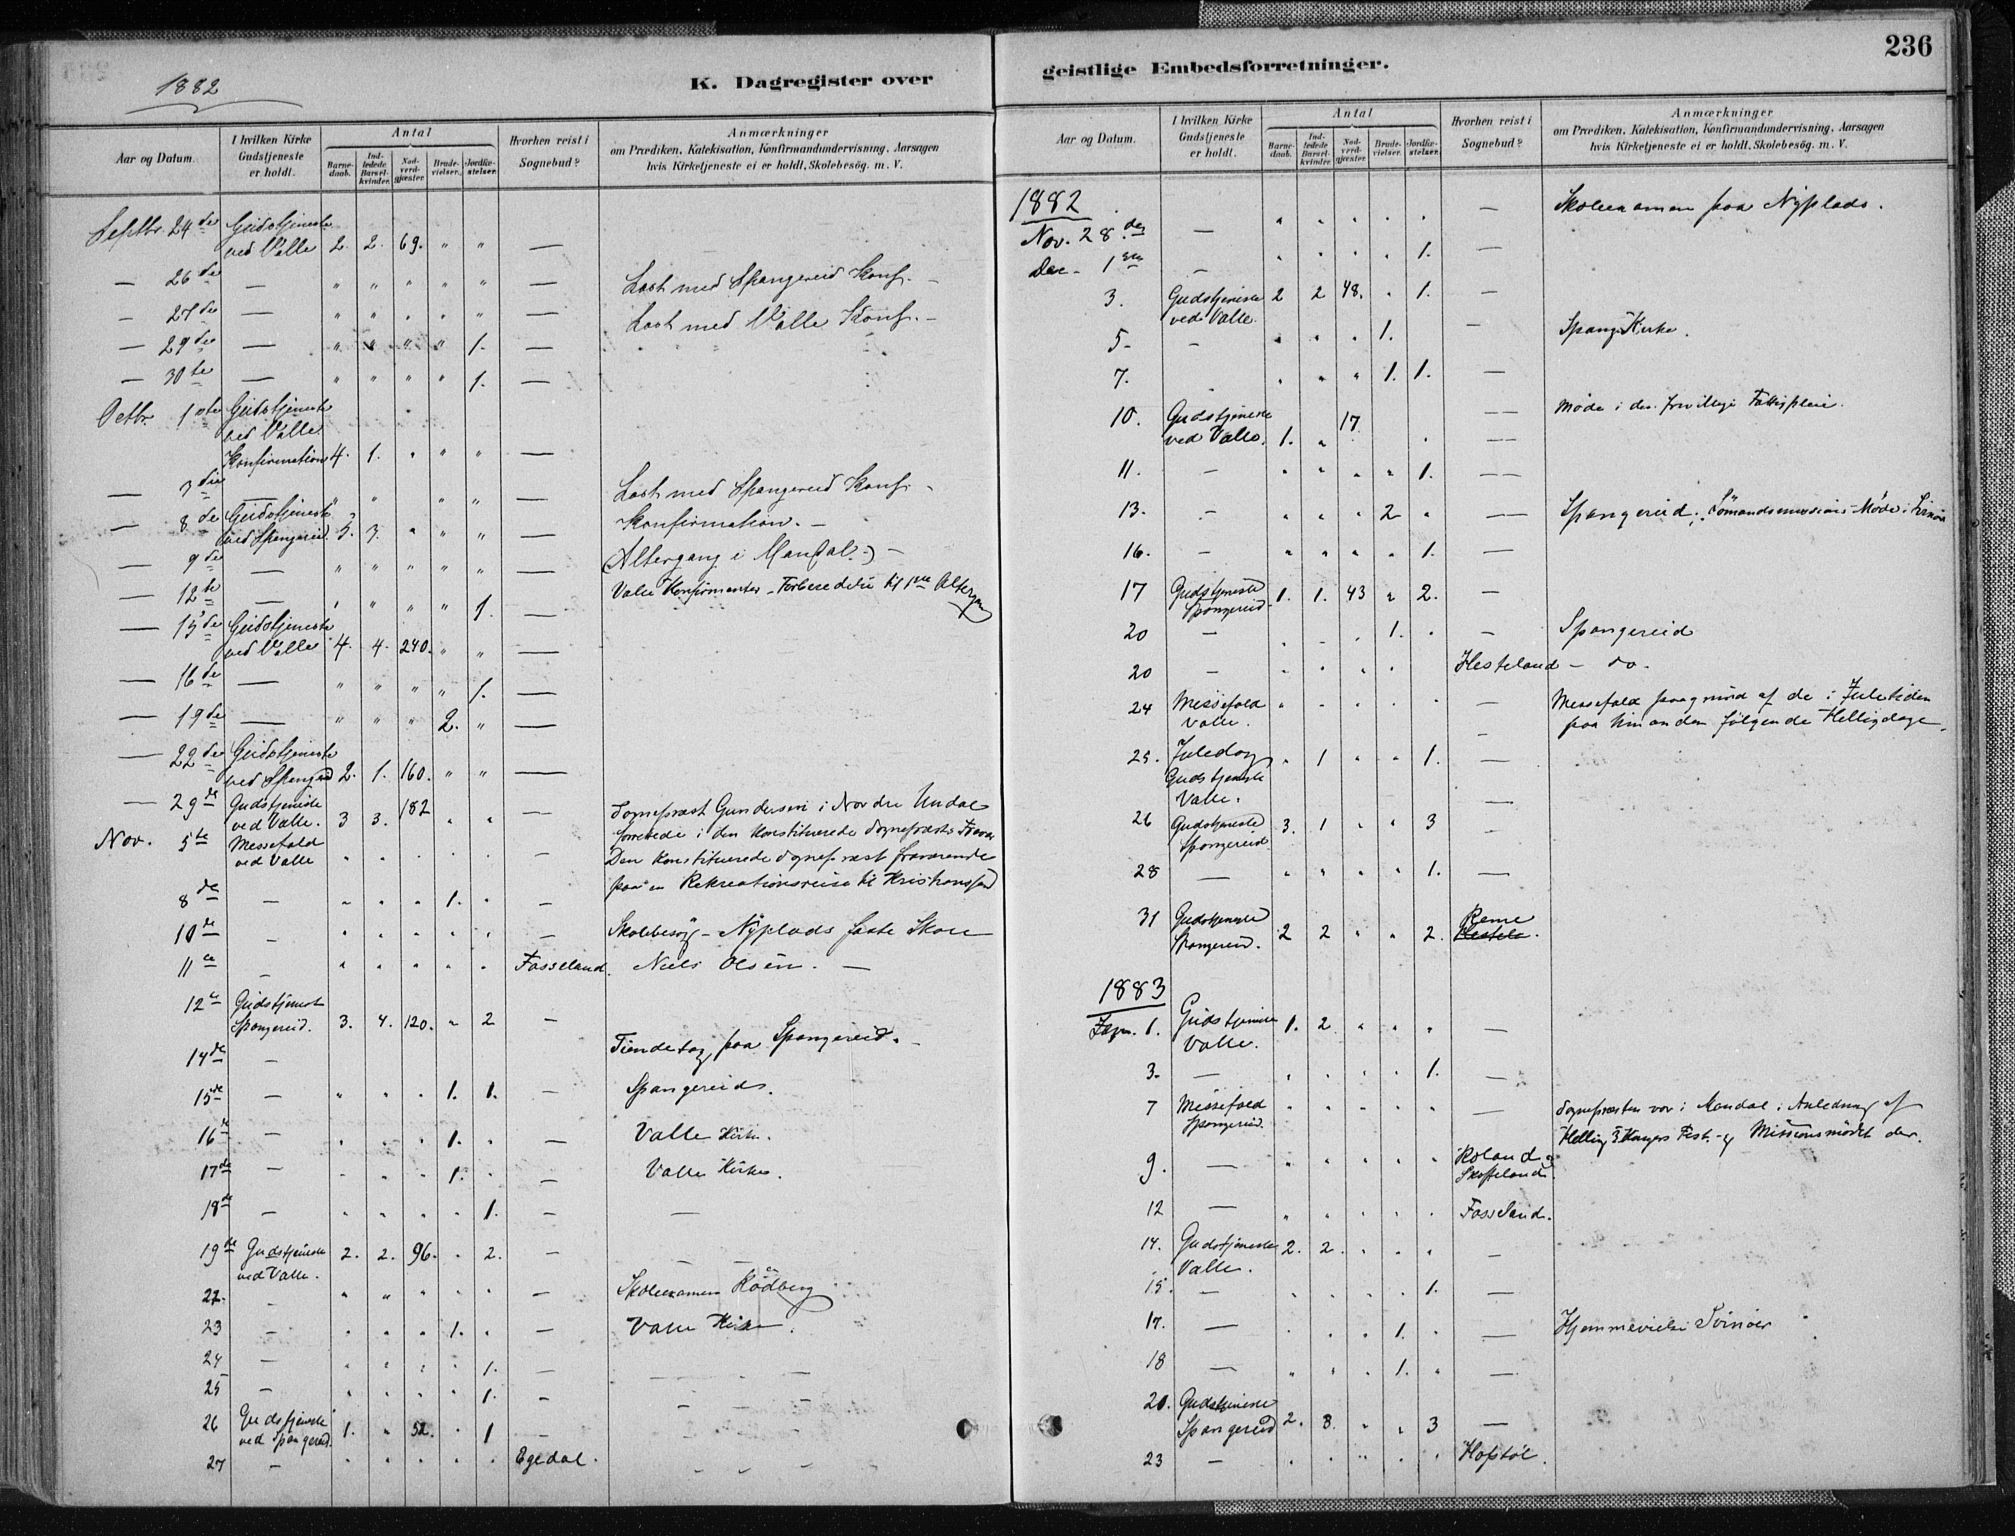 1882
K. Dagregister over
Aar og Datum.
I hvilken Kirke Gudstjeneste er holdt.
Antal
Barne-daab.
Ind-ledede Barsel-kvinder.
Nad-verd-gjæster.
Brude-vielser.
Jordfæ-stelser.
Hvorhen reist i Sognebud?
Anmærkninger
om Prædiken, Katekisation, Konfirmandundervisning, Aarsagen
hvis Kirketjeneste ei er holdt, Skolebesög. m. V.
Septbr. 24de Gudstjeneste
ved Valle 2. 2. 69. " " —
— 26de — " " " " " — Læst med Spangereid Konf. —
— 27de — " " " " " — Læst med Valle Konf. —
— 29de — " " " " 1. —
— 30te — " " " " 1. —
Octbr. 1ste Gudstjeneste
ved Valle
Konfirmation 4. 1. " " " —
— 3die — " " " " — Læst med Spangereid Konf. —
— 8de Gudstjeneste
ved Spangereid 3. 3. " " " — Konfirmation. —
— 9de — " " " " " — (Altergang i Mandal.) —
— 12te — " " " " 1. — Valle Konfirmanter — Forberedelse til 1ste Altergang
— 15de Gudstjeneste
ved Valle 4. 4. 240. " " —
— 16de — " " " " 1. —
— 19de — " " " 2. " —
— 22de Gudstjeneste
ved Spangereid 2. 1. 160. " " —
— 29de Gudstjeneste
ved Valle. 3 3. 182 " " — Sognepræst Gundersen i Nordre Undal
Nov. 5te Messefald
ved Valle " " " " " — forrettede i den Konstituerede Sognepræsts
Den Konstituerede Sognepræst fraværende
paa en Rekreationsreise til Kristianssand
8de — " " " 1. " —
10de — " " " " " — Skolebesøg — Nyplads faste Skole
11te — " " " " " Fasseland. Niels Olsen. —
12te Gudstjenest
Spangereid. 3. 4. 120. " 2 —
14de — Tiendetog paa Spangereid. —
15de — " " " 1. 1. — Spangereid.
16de — " " " 1. " — Valle Kirke.
17de — " " " 1. " — Valle Kirke.
18de — " " " " 1. — —
19de Gudstjeneste
ved Valle. 2. 2. 96. " 2. —
22. — " " " " " — Skoleexamen Rödberg
23 — " " " 1. " — Valle Kirke.
24 — " " " " 1. —
25 — " " " " 1. —
26 Gudstjeneste
ved Spangereid. 1. " 52. " 1 —
27 — " " " " " Egedal.
236
geistlige Embedsforretninger.
Aar og Datum.
I hvilken Kirke Gudstjeneste er holdt.
Antal
Barne-daab.
Ind-ledede Barsel-kvinder.
Nad-verd-gjæster.
Brude-vielser.
Jordfæ-stelser.
Hvorhen reist i Sognebud?
Anmærkninger
om Prædiken, Katekisation, Konfirmandundervisning, Aarsagen
hvis Kirketjeneste ei er holdt, Skolebesög. m. V.
1882
Nov. 28de — " " " " " — Skoleexamen paa Nyplads.
Dec. 1ste — " " " " 1. —
3. Gudstjeneste
ved Valle. 2 2 48. " 1. —
5 — " " " 1. — Spang. Kirke.
7. " " " 1. 1. —
10. Gudstjeneste
ved Valle. 1. " 17 " — Møde i den frivillige Fattigpleie.
11. — " " " " 1. —
13. — " " " 2 " — Spangereid; Sömandsmissions-Møde i Svinør
16. — " " " " 1. —
17 Gudstjeneste
Spangereid. 1. 1. 43 " 2. —
20 — " " " 1. " — Spangereid
20 — " " " " Hesteland — do.
24 Messefald
Valle. " " " " " — Messefald paagrund af de i Juletiden
paa hinanden følgende Helligdage.
25. Juledag
Gudstjeneste
Valle. " 1 " " 1. —
26 Gudstjeneste
Spangereid 3. 1 " " 3 —
28 — " " " " 1. —
31 Gudstjeneste
Spangereid. 2 2 " " 2. Reme
1883
Jan. 1. Gudstjeneste
Valle. 1. 2 " " " —
3. — " " " " 1. —
7 Messefald
Spangereid. " " " " " — Sognepræsten var i Mandal i Anledning af
Hellig 3 Kongers Fest og Missionsmödet der.
9. — " " " " " Roland og
Skofteland
12 — " " " " " Fasseland.
14. Gudstjeneste
Valle. 2. 2. " " " —
15. — " " " " 1. —
17. — " " " 1. " — Hjemmevielse Svinør
18 — " " " 1. " —
20. Gudstjeneste
Spangereid 2. 3. " " 3 —
23 — " " " " " Hofstøl.